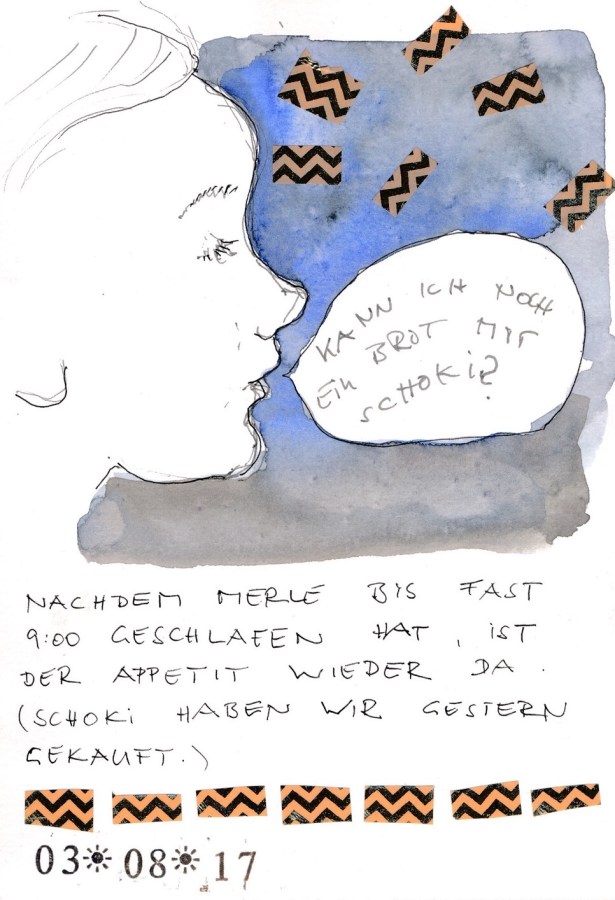 KANN ICH NOCH
EIN BROT MIT
SCHOKi?
NACHDEM MERLE BIS FAST
9:00 GESCHLAFEN HAT, iST
DER APPETIT WIEDER DA.
(SCHOKi HABEN WIR GESTERN
GEKAUFT.)
03☀08☀17